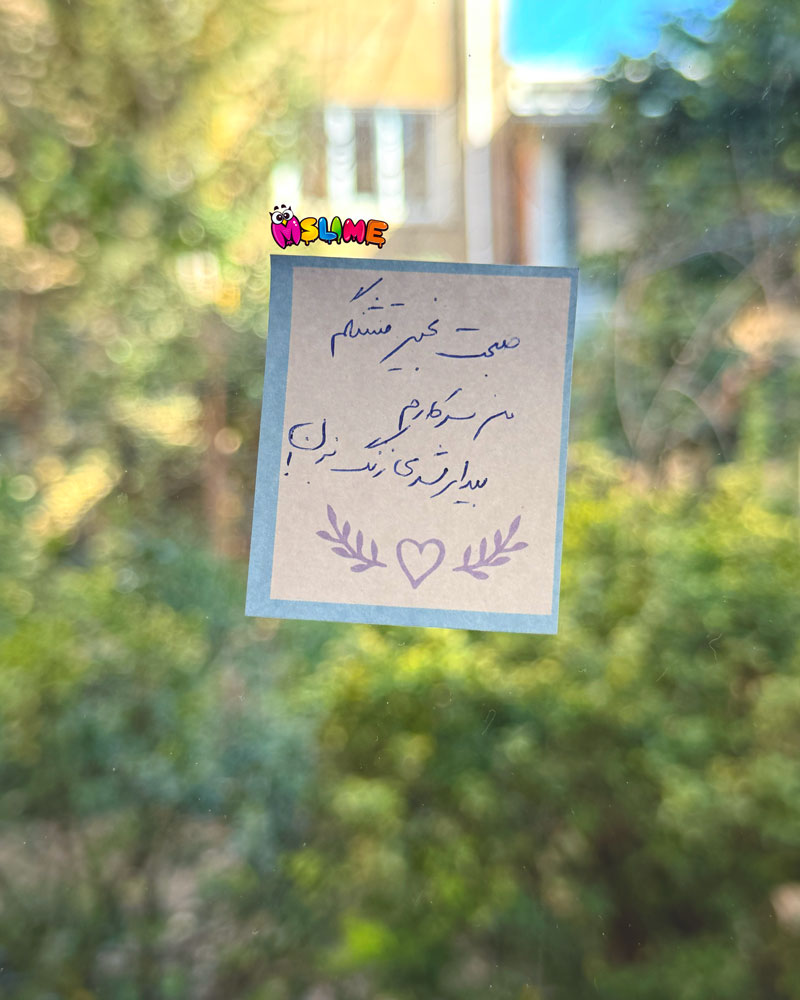 MSLIME
صبحت بخیر قشنگم
من سرکارم
بیدار شدی زنگ بزن!